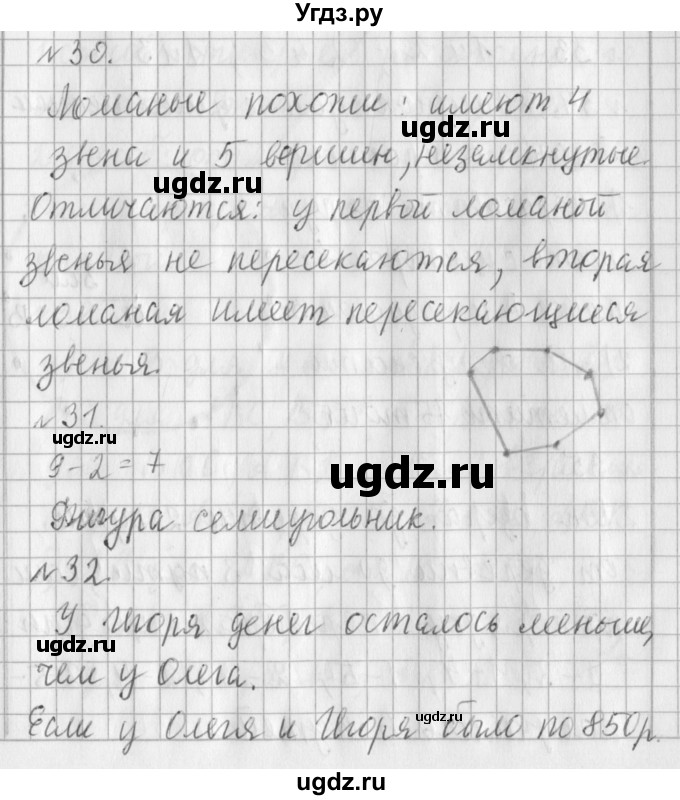 Угдз.ру
№30.
Ломаные похожи: имеют 4
ugdz.ru
звена и 5 вершин, незамкнутые.
ugdz.ru
Отличаются: у первой ломаной
звенья не пересекаются, вторая
ломаная имеет пересекающиеся
звенья.
№31.
ugdz.ru
9-2=7
ugdz.ru
Фигура семиугольник.
№32.
У Игоря денег осталось меньше,
ugdz.ru
чем у Олега.
ugdz.ru
Если у Олега и Игоря было по 850р.
ugdz.ru